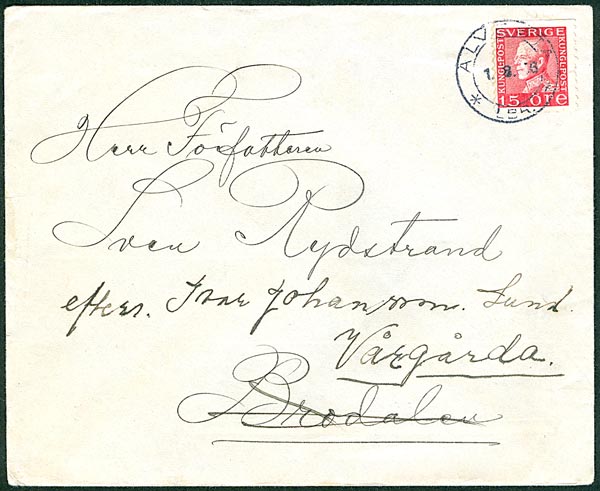 SVERIGE
KUNGL·POST KUNGL·POST
15 ÖRE
ALV
LBR.
Herr Författaren
Sven Rydstrand
efters. Ivar Johansson. Lund.
Vårgårda.
Brodalen